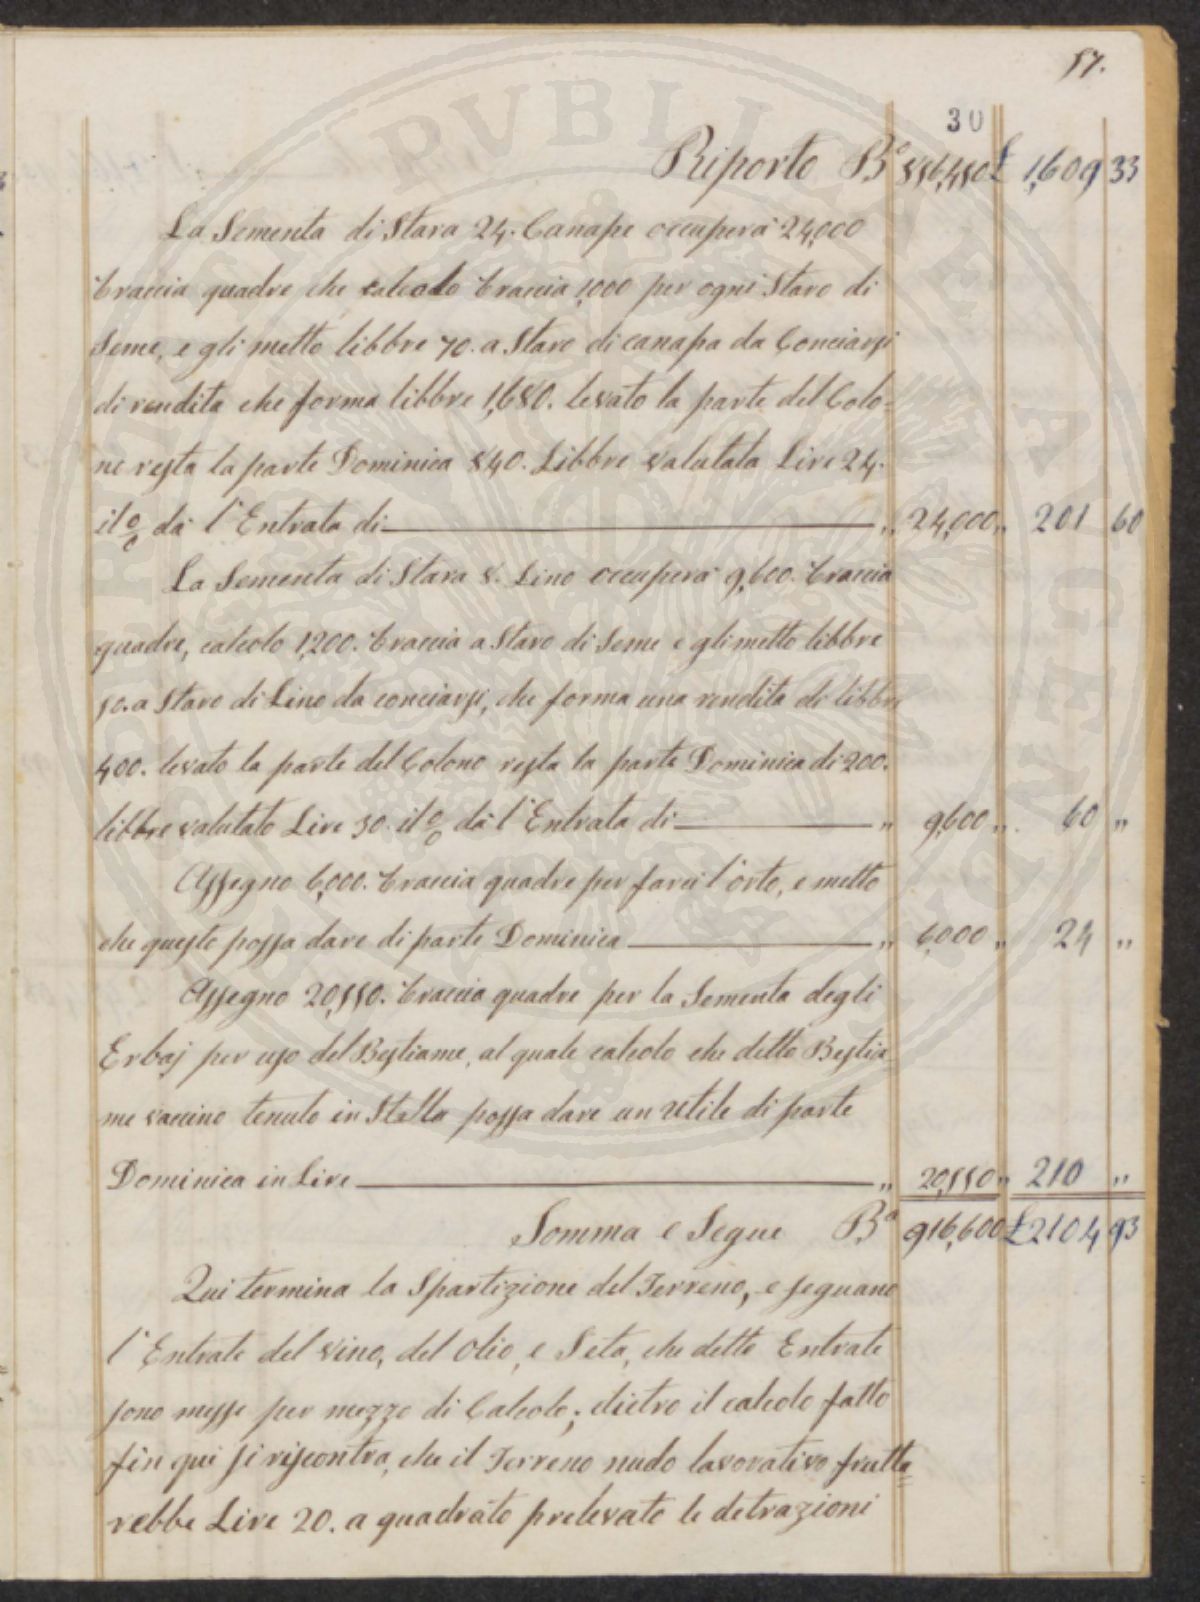 PROSPERITATI PVBLICAE AVGENDAE
57.
30
Riporto Bª 856,450 £ 1,609 33
La Sementa di Stara 24. Canape occuperà 24,000
braccia quadre che calcolo braccia 1,000 per ogni Staro di
Seme, e gli metto libbre 70. a Staro di canapa da Conciarsi
di rendita che forma libbre 1,680. levato la parte del Colo=
no resta la parte Dominica 840. Libbre valutata Lire 24.
il % dà l'Entrata di „ 24,000 „ 201 60
La Sementa di Stara 8. Lino occuperà 9,600. braccia
quadre, calcolo 1,200. braccia a Staro di Seme e gli metto libbre
50. a Staro di Lino da conciarsi, che forma una rendita di libbre
400. levato la parte del Colono resta la parte Dominica di 200.
libbre valutato Lire 30. il % dà l'Entrata di „ 9,600 „ 60 „
Assegno 6,000. braccia quadre per farci l'orto, e metto
che questo possa dare di parte Dominica „ 6,000 „ 24 „
Assegno 20,550. braccia quadre per la Sementa degli
Erbaj per uso del Bestiame, al quale calcolo che detto Bestia
me vaccino tenuto in Stalla possa dare un utile di parte
Dominica in Lire „ 20,550 „ 210 „
Somma e Segue Bª 916,600 £ 2104 93
Qui termina la Spartizione del Terreno, e seguano
l'Entrate del vino, del Olio, e Seta, che dette Entrate
sono messe per mezzo di Calcolo; dietro il calcolo fatto
fin qui si riscontra, che il Terreno nudo lavorativo frutte=
rebbe Lire 20. a quadrato prelevato le detrazioni